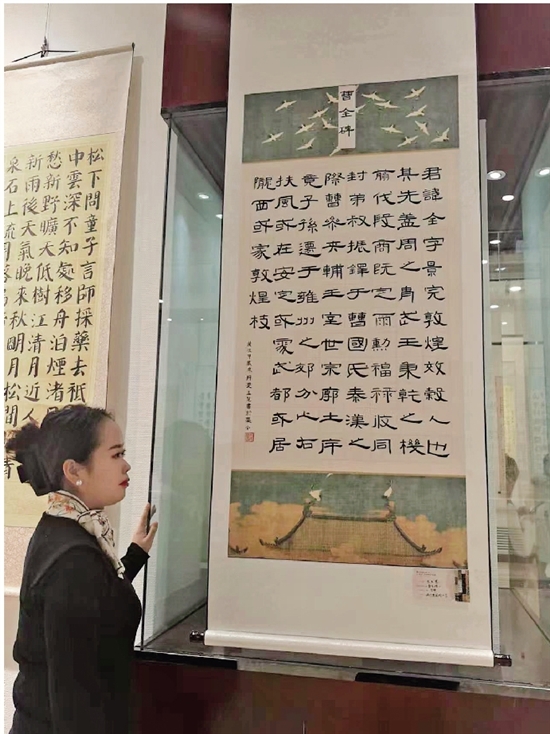 曹全碑
君諱全字景完敦煌效穀人也
其先蓋周之胄武王秉乾之機
翦伐殷商既定爾勳福祿攸同
封弟叔振鐸于曹國氏秦漢之
際曹參夾輔王室世宗廓土序
竟子孫遷于雍州之郊分止右
扶風或在安定或處武都或居
隴西或家敦煌枝
松下問童子言師採藥去祗
中雲深不知處移舟泊煙渚
愁新野曠天低樹江清月近人
新雨後天氣晚來秋明月松間
泉石上流